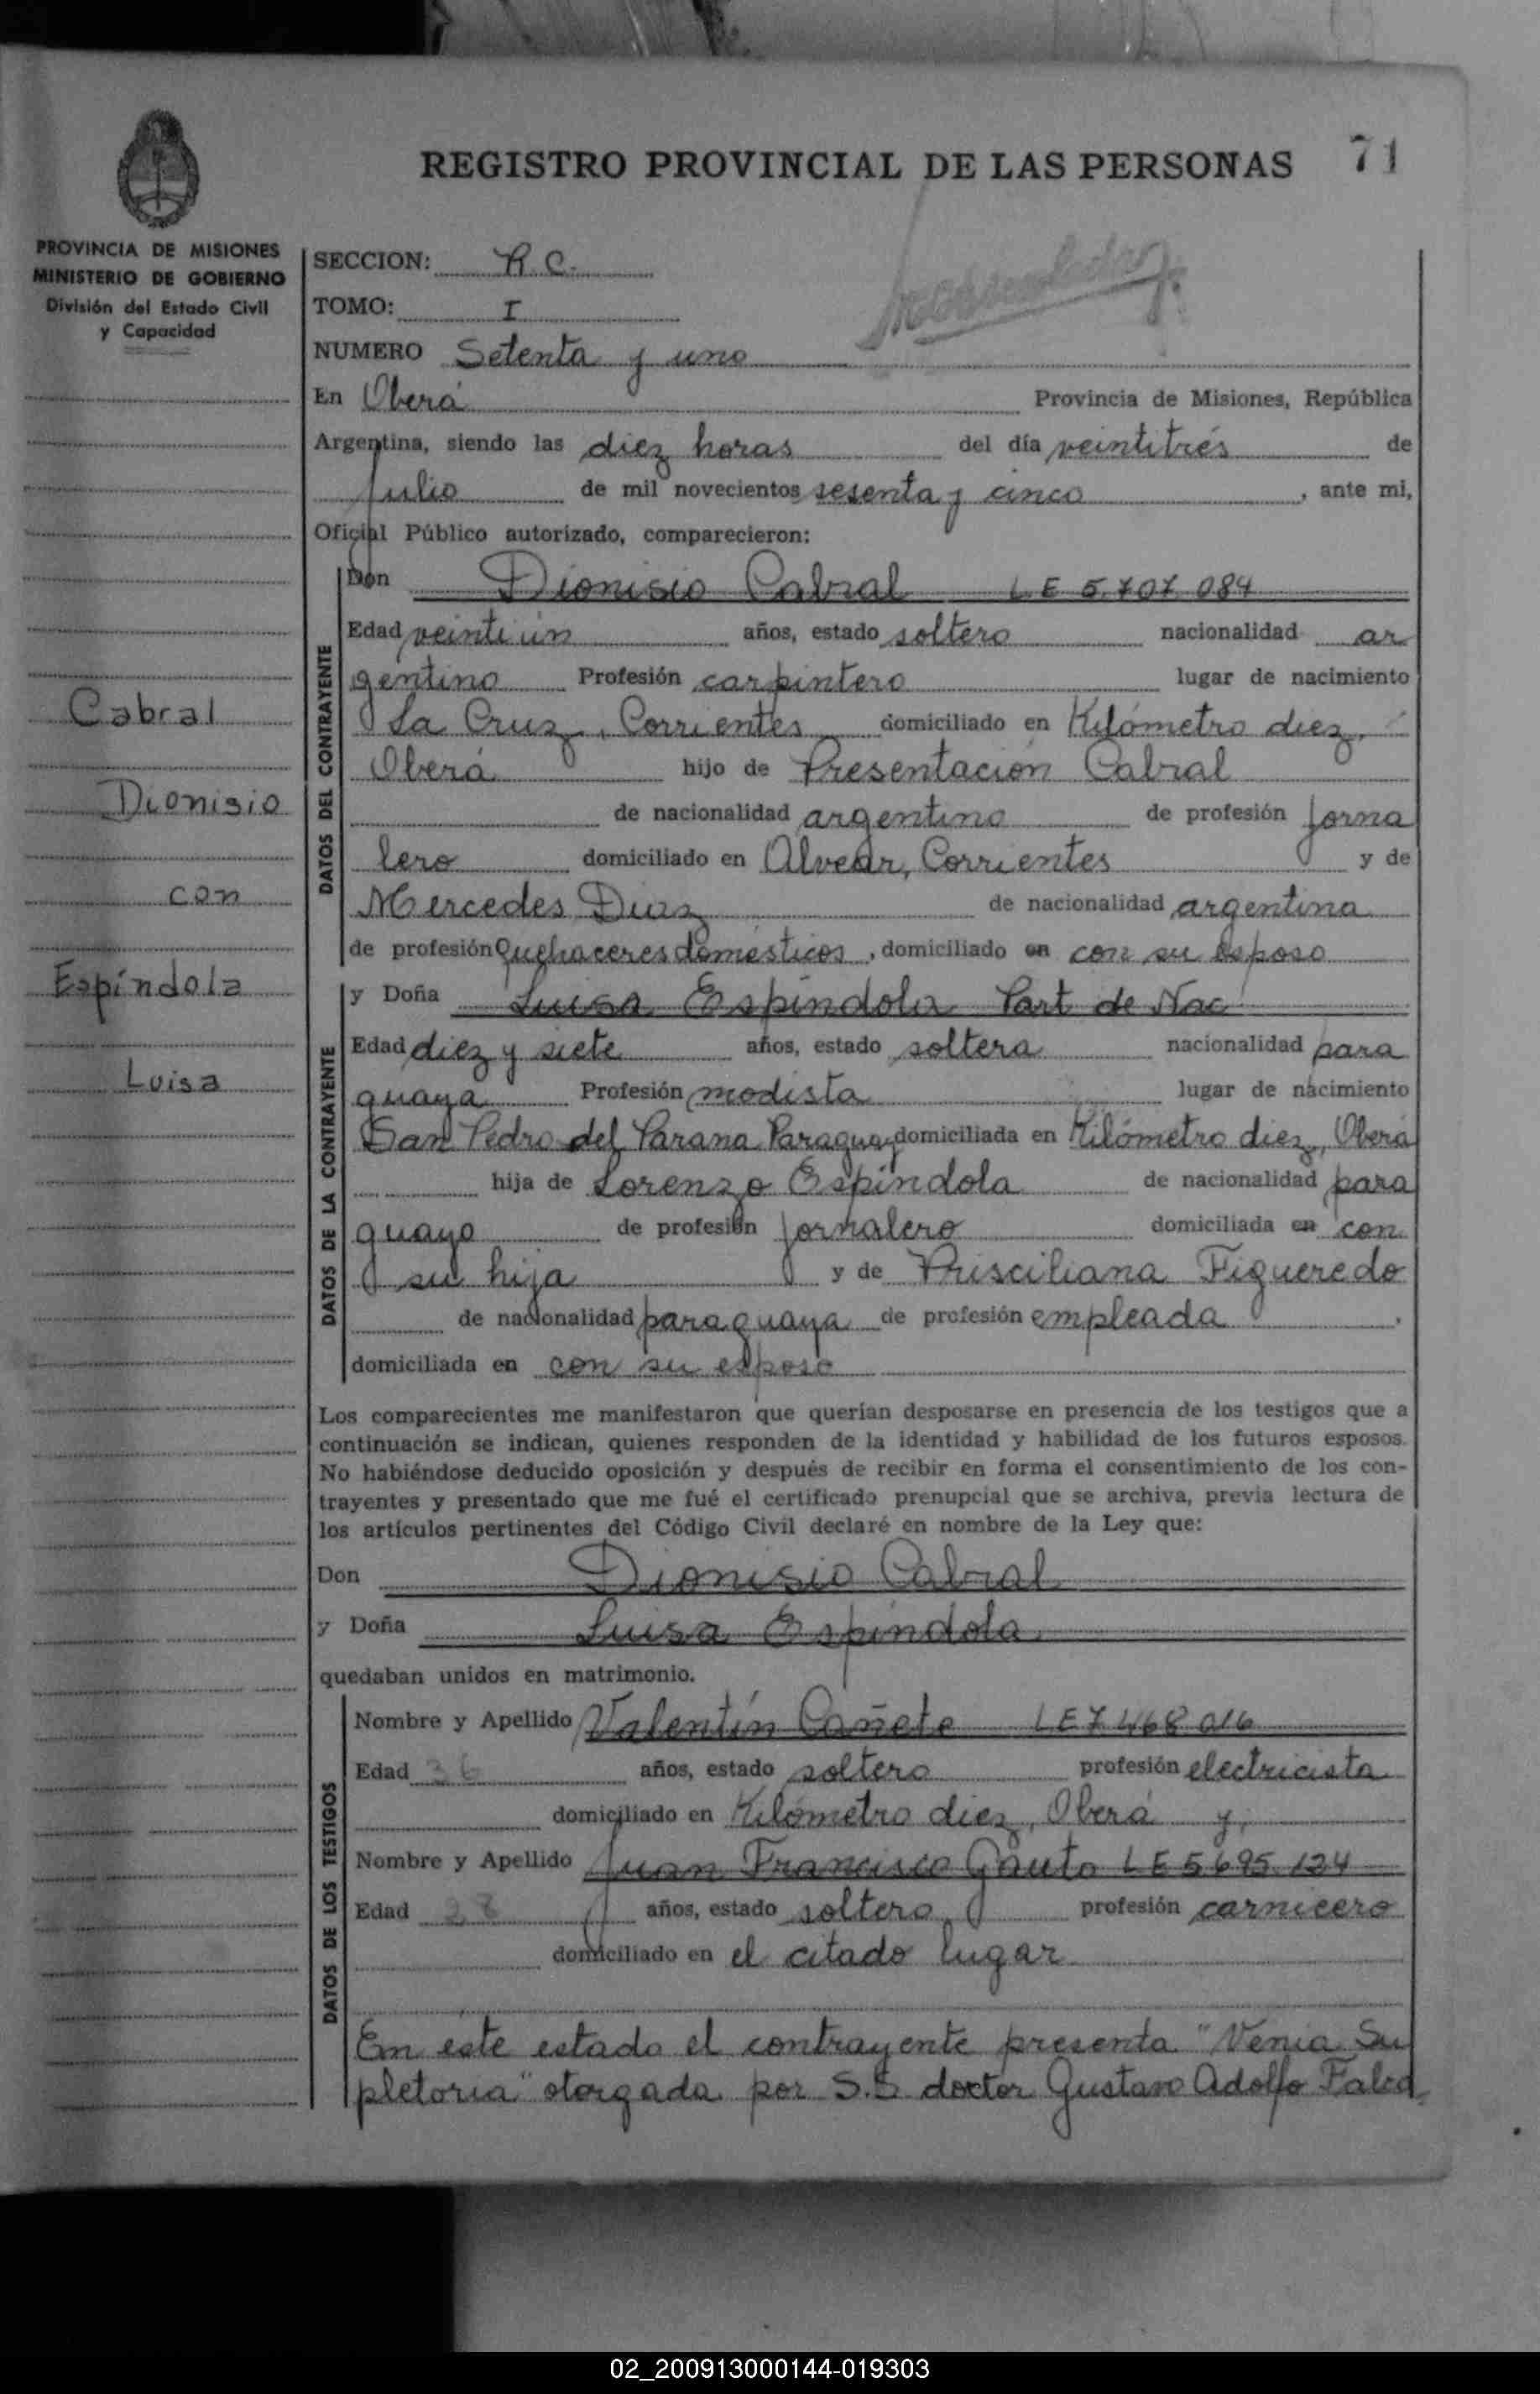 REGISTRO PROVINCIAL DE LAS PERSONAS 71
PROVINCIA DE MISIONES
MINISTERIO DE GOBIERNO
División del Estado Civil
y Capacidad
Cabral
Dionisio
con
Espíndola
Luisa
SECCION: R.C.
TOMO: I
NUMERO Setenta y uno
En Oberá Provincia de Misiones, República
Argentina, siendo las diez horas del día veintitrés de
Julio de mil novecientos sesenta y cinco, ante mi,
Oficial Público autorizado, comparecieron:
DATOS DEL CONTRAYENTE
Don Dionisio Cabral LE 5.707.084
Edad veinti ún años, estado soltero nacionalidad ar
gentino Profesión carpintero lugar de nacimiento
La Cruz, Corrientes domiciliado en Kilómetro diez,
Oberá hijo de Presentación Cabral
de nacionalidad argentino de profesión jorna
lero domiciliado en Alvear, Corrientes y de
Mercedes Diaz de nacionalidad argentina
de profesión Quehaceres domésticos, domiciliado en con su esposo
DATOS DE LA CONTRAYENTE
y Doña Luisa Espíndola Part de Nac
Edad diez y siete años, estado soltera nacionalidad para
guaya Profesión modista lugar de nacimiento
San Pedro del Parana Paraguay domiciliada en Kilómetro diez, Oberá
hija de Lorenzo Espíndola de nacionalidad para
guayo de profesión jornalero domiciliada en con
su hija y de Prisciliana Figueredo
de nacionalidad paraguaya de profesión empleada.
domiciliada en con su esposo
Los comparecientes me manifestaron que querían desposarse en presencia de los testigos que a
continuación se indican, quienes responden de la identidad y habilidad de los futuros esposos.
No habiéndose deducido oposición y después de recibir en forma el consentimiento de los con-
trayentes y presentado que me fué el certificado prenupcial que se archiva, previa lectura de
los artículos pertinentes del Código Civil declaré en nombre de la Ley que:
Don Dionisio Cabral
y Doña Luisa Espíndola
quedaban unidos en matrimonio.
DATOS DE LOS TESTIGOS
Nombre y Apellido Valentín Cañete LE 7.468.016
Edad 36 años, estado soltero profesión electricista
domiciliado en Kilómetro diez, Oberá y,
Nombre y Apellido Juan Francisco Gauto LE 5.695.124
Edad 28 años, estado soltero profesión carnicero
domiciliado en el citado lugar
En éste estado el contrayente presenta "Venia Su
pletoria" otorgada por S.S. doctor Gustavo Adolfo
02_200913000144-019303